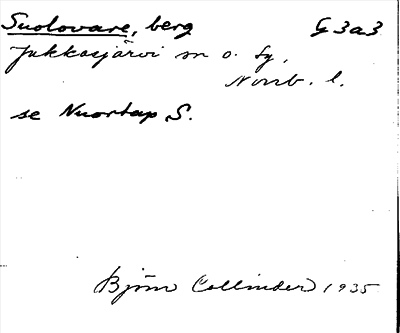 Suolovare, berg G 3a3
Jukkasjärvi sn o. tg,
Norrb. l.
se Nuortap S.
Björn Collinder 1935